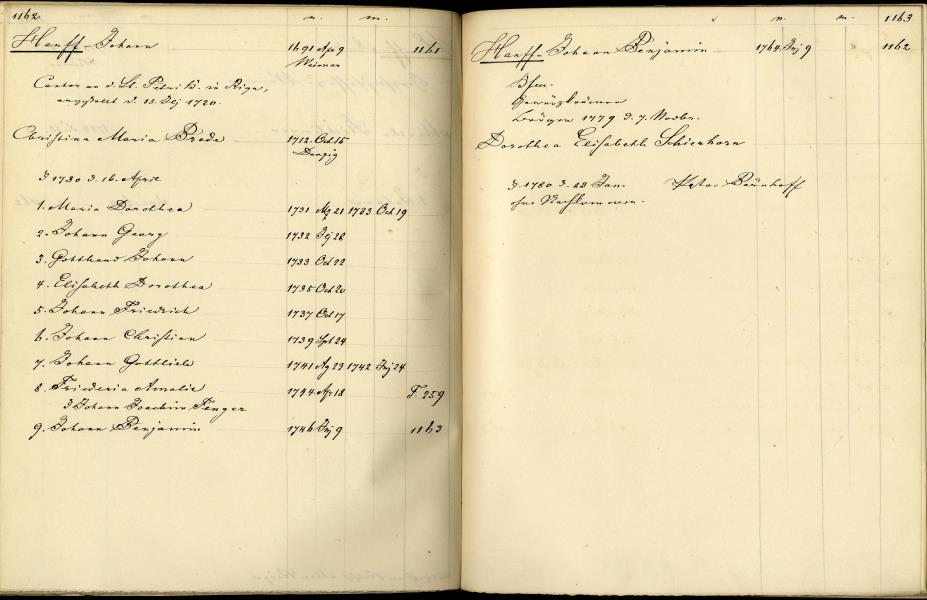 1162. n. m.
Hanff Johann 1691 Apr 9 1161
Weimar
Cantor an d. St. Petri K. in Riga,
angestellt d. 15. Jlj 1720.
Christina Maria Brede 1712. Oct 15
Danzig
1730 d. 16. April
1. Maria Dorothea 1731 Mz 21 1783 Oct 19
2. Johann Georg 1732 Jlj 28
3. Gotthard Johann 1733 Oct 22
4. Elisabeth Dorothea 1735 Oct 20
5. Johann Friedrich 1737 Oct 17
6. Johann Christian 1739 Spt 24
7. Johann Gottlieb 1741 Ag 23 1742 24
8. Friederica Amalie 1744 Apr 18 F. 259
Johann Joachim Fenger
9. Johann Benjamin 1746 9 1163
n. m. 1163
Hanff Johann Benjamin 1764 9 1162
Gewürzkrämer
Bürger 1779 d. 7. Novbr.
Dorothea Elisabeth Schierhorn
1780 d. 28 Jan.
ohne Nachkommen.